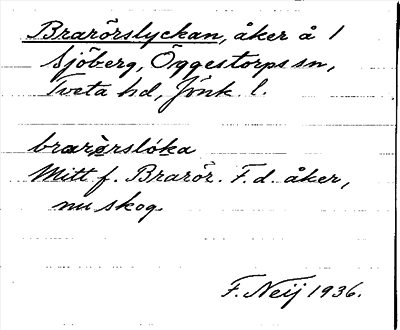 Brarörslyckan, åker å 1
Sjöberg, Öggestorps sn,
Tveta hd, Jönk. l.
brarèrslóka
Mitt f. Brarör. F.d. åker,
nu skog.
F. Neij 1936.